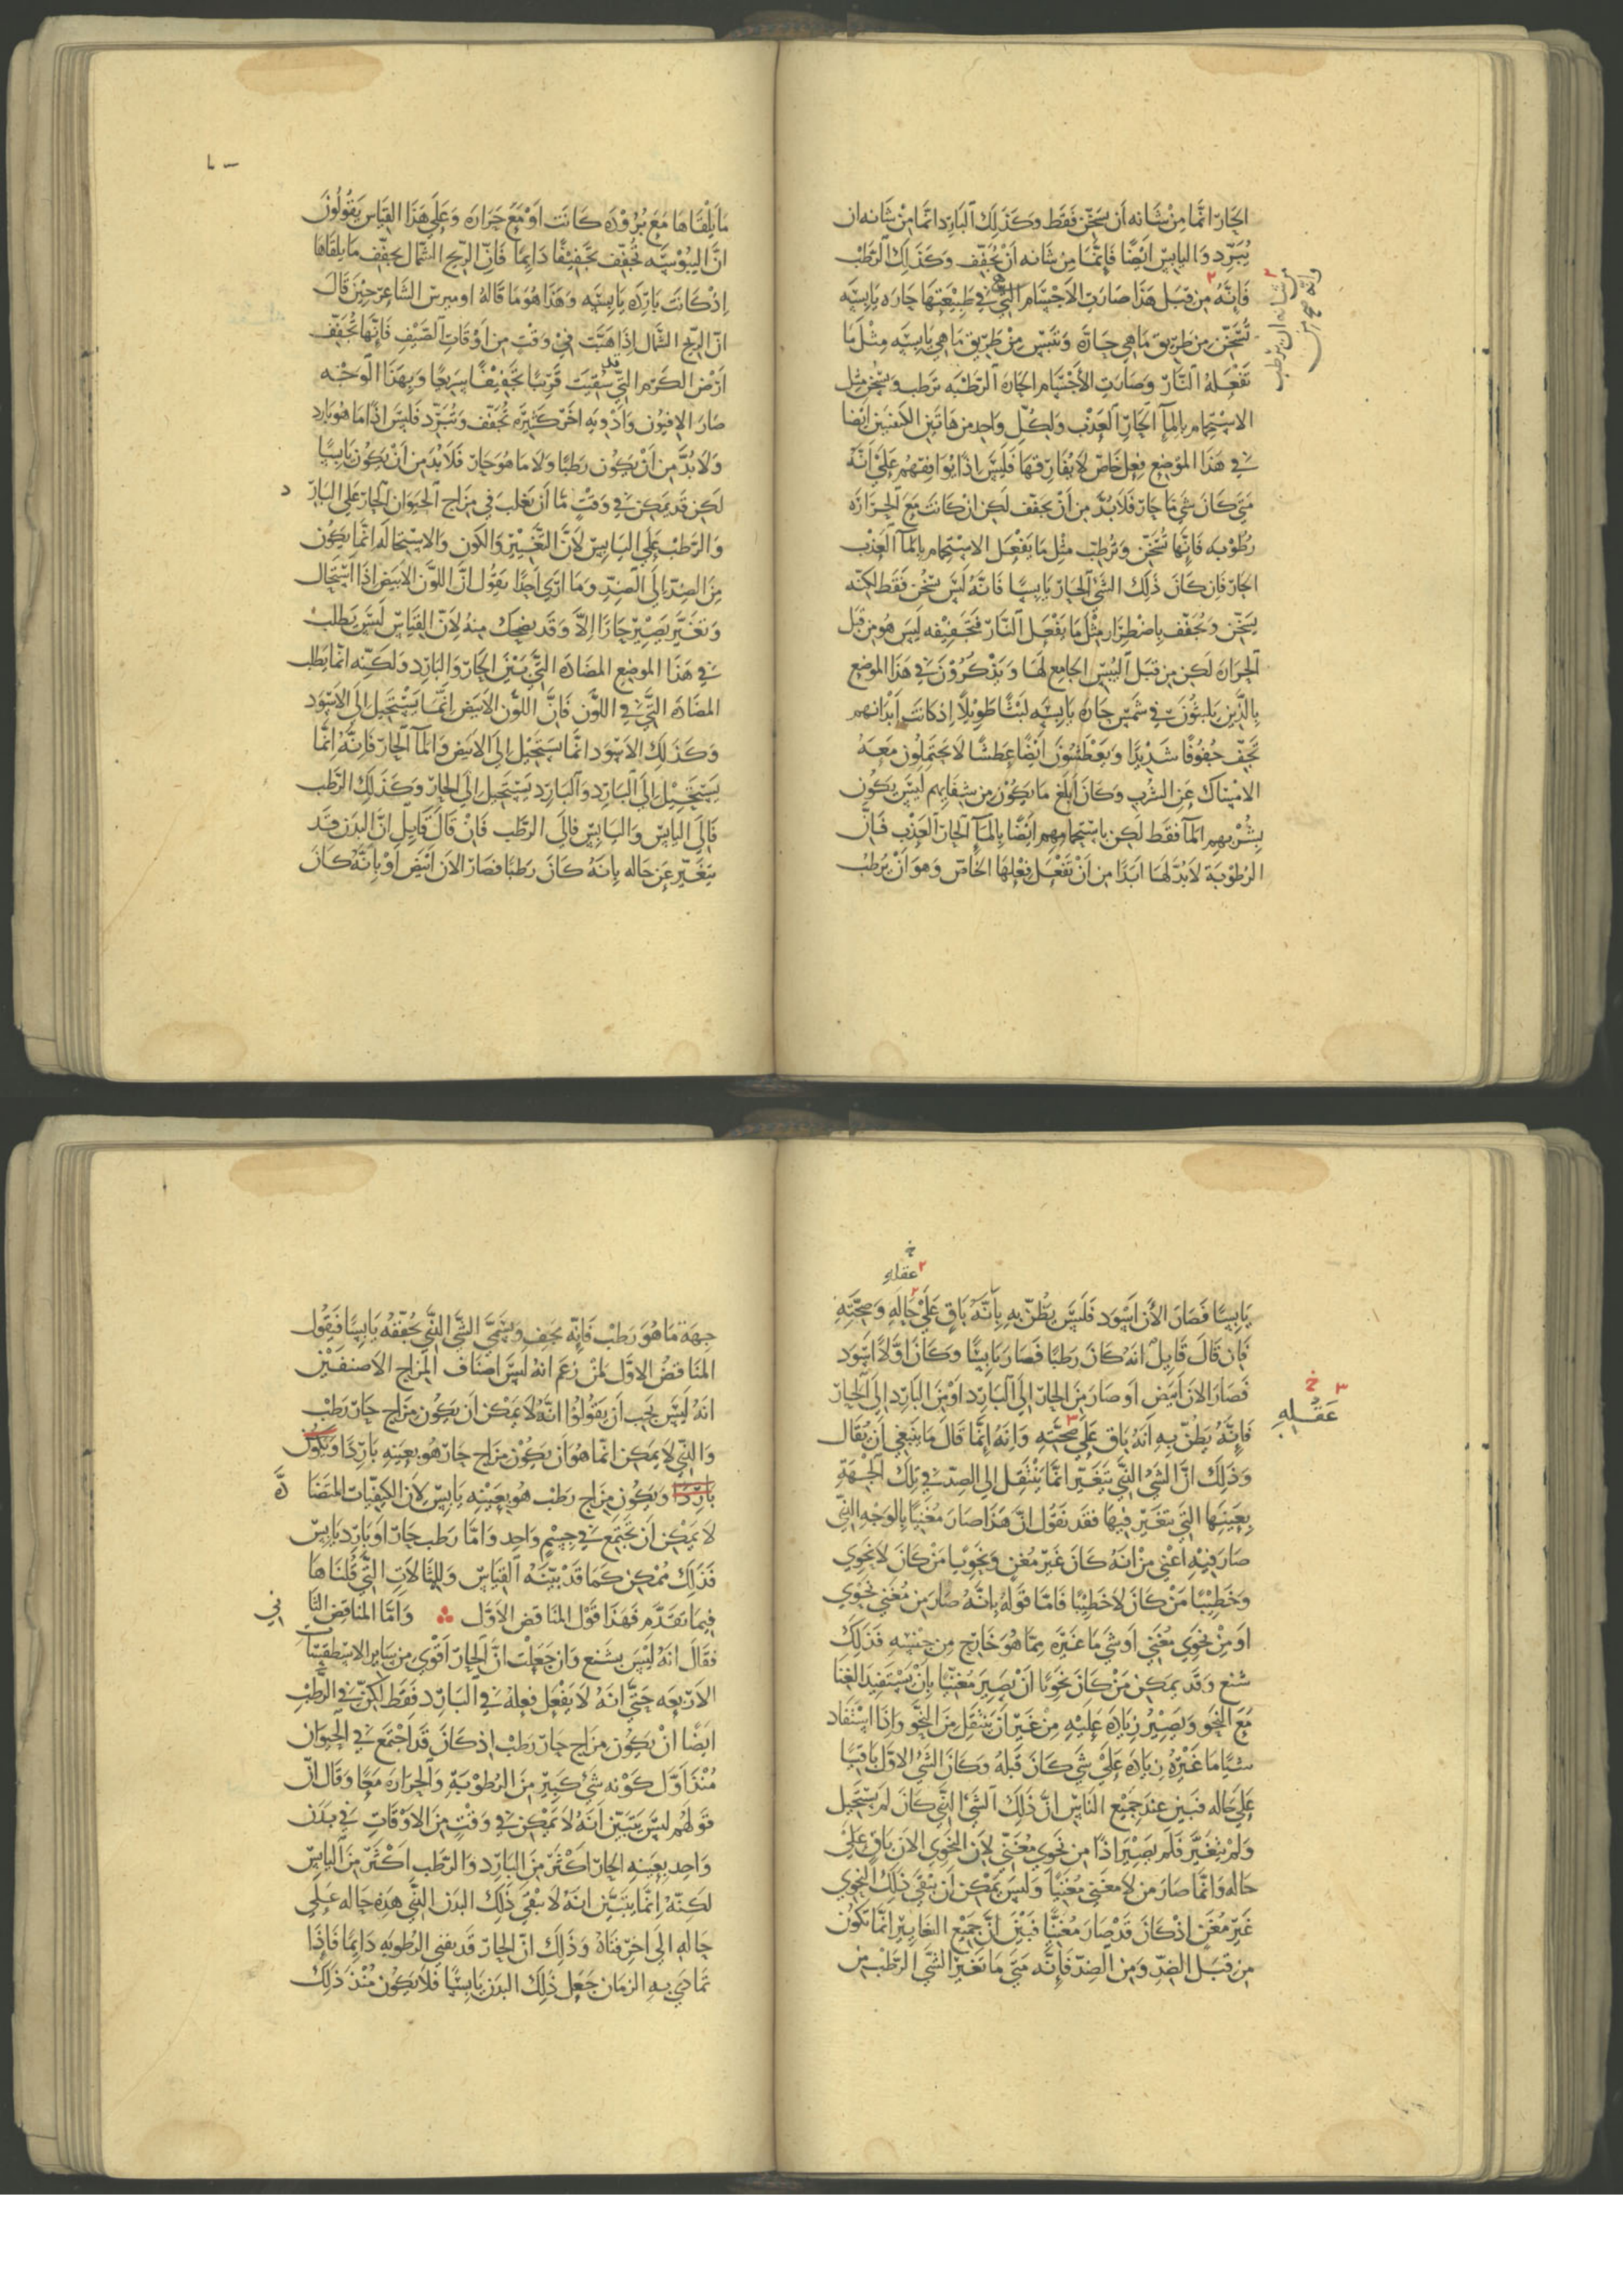 الحارّ انّما من شانه ان يسخّن فقط وكذلك البارد انّما من شانه ان
يبرّد واليابس ايضًا فانّما من شانه ان يجفّف وكذلك الرّطب
فانّه من قبل هذا صارت الاجسام التي في طبيعتها حاره يابسه
تسخّن من طريق ما هي حارّة وتيبّس من طريق ما هي يابسه مثل ما
تفعله النّار وصارت الأجسام الحاره الرّطبه ترطب وتسخّن مثل
الاستحمام بالمآ الحارّ العذب ولكلّ واحد من هاتين الكيفيتين ايضا
في هذا الموضع فعل خاصّ لا يفارقها فليس اذًا يوافقهم على انّه
متى كان شي ما حارّ فلا بدّ من ان يجفّف لكن ان كانت مع الحراره
رطوبه فانّها تسخّن وترطب مثل ما يفعل الاستحمام بالمآ العذب
الحارّ فان كان ذلك الشّي الحارّ يابسًا فانّه ليس يسخّن فقط لكنّه
يسخّن ويجفّف باضطرار مثل ما يفعل النّار فتجفيفه ليس هو من قبل
الحراره لكن من قبل اليبس الجامع لها ويذكرون في هذا الموضع
بالّذين يلبثون في شمس حارة يابسه لبثًا طويلًا اذ كانت ابدانهم
تجفّ جفوفًا شديدًا ويعطشون ايضًا عطشًا لا يحتملون معه
الامساك عن الشّرب وكان ابلغ ما يكون من شفايهم ليس يكون
بشربهم المآ فقط لكن باستحمامهم ايضًا بالمآ الحارّ العذب فانّ
الرّطوبة لا بدّ لها ابدًا من ان تفعل فعلها الخاصّ وهو ان يرطب
من شانه ان يرطب
وانّه صح من
ما يلقاها مع بروده كانت او مع حراره وعلى هذا القياس يقولون
انّ اليبوسه تجفّف تجفيفًا دايمًا فانّ الرّيح الشمال يجفّف ما يلقاها
اذ كانت بارده يابسه وهذا هو ما قاله اوميرس الشاعر حين قال
انّ الرّيح الشّمال اذا هبّت في وقت من اوقات الصّيف فانّها تجفّف
ارض الكرم التي سقيت قريبًا تجفيفًا سريعًا وبهذا الوجه
صار الافيون وادويه اخر كثيره تجفّف وتبرّد فليس اذًا ما هو بارد
ولا بدّ من ان يكون رطبًا ولا ما هو حارّ فلا بد من ان يكون يابسًا
لكن قد يمكن في وقت ما ان يغلب في مزاج الحيوان الحارّ على البارّ د
والرّطب على اليابس لانّ التّغيّر والكون والاستحاله انّما يكون
من الضّد الى الضّدّ وما ارى احدًا يقول انّ اللّون الابيض اذا استحال
وتغيّر يصير حارًا الّا وقد يضحك منه لانّ القياس ليس يطلب
في هذا الموضع المضاده التّي بين الحارّ والبارد ولكنّه انّما يطلب
المضاده التّي في اللّون فانّ اللّون الابيض انّما يستحيل الى الاسود
وكذلك الاسود انّما يستحيل الى الابيض والمآ الحارّ فانّه انّما
يستحيل الى البارد والبارد يستحيل الى الحارّ وكذلك الرّطب
فالى اليابس واليابس فالى الرّطب فان قال قايل انّ البدن قد
يتغيّر عن حاله بانه كان رطبًا فصار الان ابيض او بانّه كان
خ
٢ عقله
يابسًا فصار الأن اسود فليس يظنّ به بانّه باق على حاله وصحّته
فان قال قايل انه كان رطبًا فصار يابسًا وكان اوّلًا اسود
فصار الان ابيض او صار من الحارّ الى البارد او من البارد الى الحارّ
فانّه يظنّ به انه باق على صحّته وانه انّما قال ما ينبغي ان يقال
وذلك انّ الشّي الذي يتغيّر انّما ينتقل الى الضّدّ في تلك الجهة
بعينها التي يتغيّر فيها فقد نقول انّ هذا صار مغنيًا بالوجه الذّي
صار فيه اعني من انه كان غير مغنٍ ونحويا من كان لا نحوي
وخطيبًا من كان لا خطيبًا فامّا قوله بانّه صار من مغني نحوي
او من نحوي مغني او شي ما غيره ممّا هو خارج من جنسه فذلك
شنع وقد يمكن من كان نحويًا ان يصير مغنيّا بان يستفيد الغنا
مع النحو ويصير زيادة عليه من غير ان ينتقل من النحو واذا استفاد
شيًا ما غيره زياده على شي كان قبله وكان الشي الاوّل باقيًا
على حاله فبين عند جميع النّاس انّ ذلك الشّي الذي كان لم يستحيل
ولم يتغيّر فلم يصير اذًا من نحوي مغنّي لان النحوي الان باق على
حاله وانّما صار من لا مغني مغنيًا وليس يمكن ان يبقى ذلك النحوي
غير مغنّ اذ كان قد صار مغنيًّا فبين انّ جميع التغايير انّما تكون
من قبل الضّدّ ومن الضدّ فانّه متى ما تغير الشّي الرّطب من
٣ خ
عقله
جهة ما هو رطب فانّه يجف ويسمّى الشّي الذّي يجفّفه يابسًا فيقول
المناقض الاوّل لمن زعم انه ليس اصناف المزاج الا صنفين
انه ليس يجب ان يقولوا انّه لا يمكن ان يكون مزاج حارّ رطب
والذّي لا يمكن انّما هو ان يكون مزاج حارّ هو بعينه باردًا ويكون
باردًا ويكون مزاج رطب هو بعينه يابس لان الكيفيّات المتضا دّه
لا يمكن ان تجتمع في جسم واحد وامّا رطب حارّ او بارد يابس
فذلك ممكن كما قد بيّنه القياس وللمثالات التّي قلناها
فيما تقدّم فهذا قول المناقض الاوّل وامّا المناقض الثا ني
فقال انه ليس بشنع وان جعلت انّ الحارّ اقوى من ساير الاسطقسّات
الاربعه حتّى انه لا يفعل فعله في البارد فقط لكنّ في الرّطب
ايضًا ان يكون مزاج حارّ رطب اذ كان قد اجتمع في الحيوان
منذ اوّل كونه شي كبير من الرطوبة والحراره معًا وقال انّ
قولهم ليس يتبيّن انه لا يمكن في وقت من الاوقات في بدن
واحد بعينه الحارّ اكثر من البارد والرّطب اكثر من اليابس
لكنّه انّما يتبيّن انه لا يبقى ذلك البدن الذّي هذه حاله على
حاله الى اخر فناه وذلك انّ الحارّ قد يفني الرّطوبه دايمًا فاذا
تمادى به الزمان جعل ذلك البدن يابسًا فلا يكون منذ ذلك